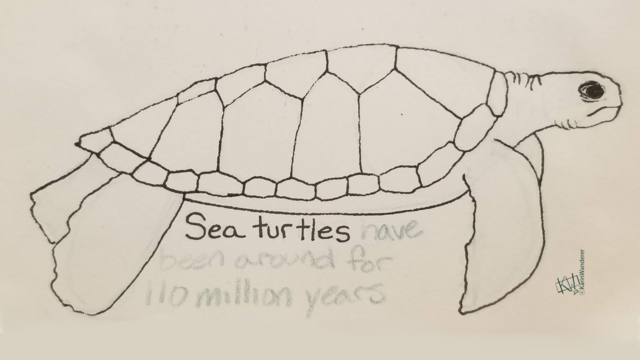 Sea turtles have
been around for
110 million years